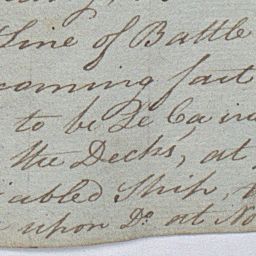 Line of Battle
coming fast
to be Le Cai
the Decks, at
abled Ship,
upon Do. at No